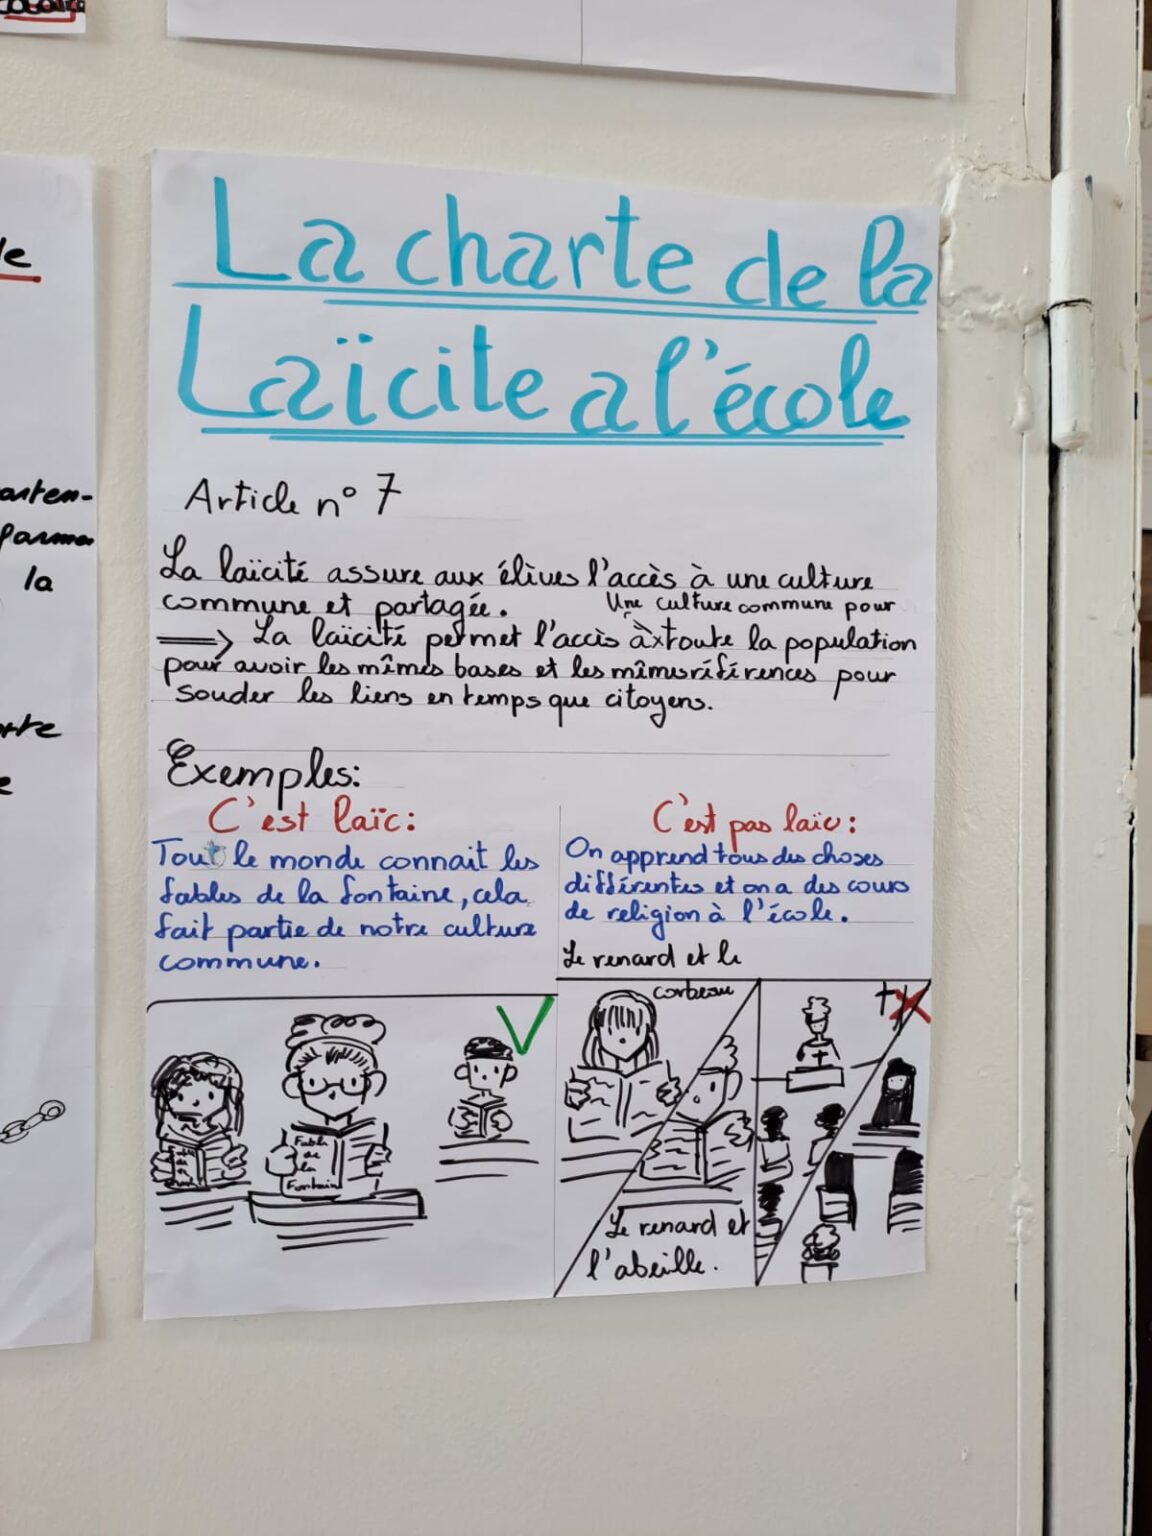 La charte de la
Laïcite a l'école
Article n° 7
La laïcité assure aux élives l'accès à une culture
commune et partagée.
Une culture commune pour
⟹ La laïcité permet l'accès à toute la population
pour avoir les mêmes bases et les mêmes références pour
souder les liens en temps que citoyens.
Exemples:
C'est laïc:
Tout le monde connait les
fables de la fontaine, cela
fait partie de notre culture
commune.
C'est pas laïc:
On apprend tous des choses
différentes et on a des cours
de religion à l'école.
Le renard et le
corbeau
Fable
de
la
Fontain
Le renard et
l'abeille.
de
arten-
la
orte
e